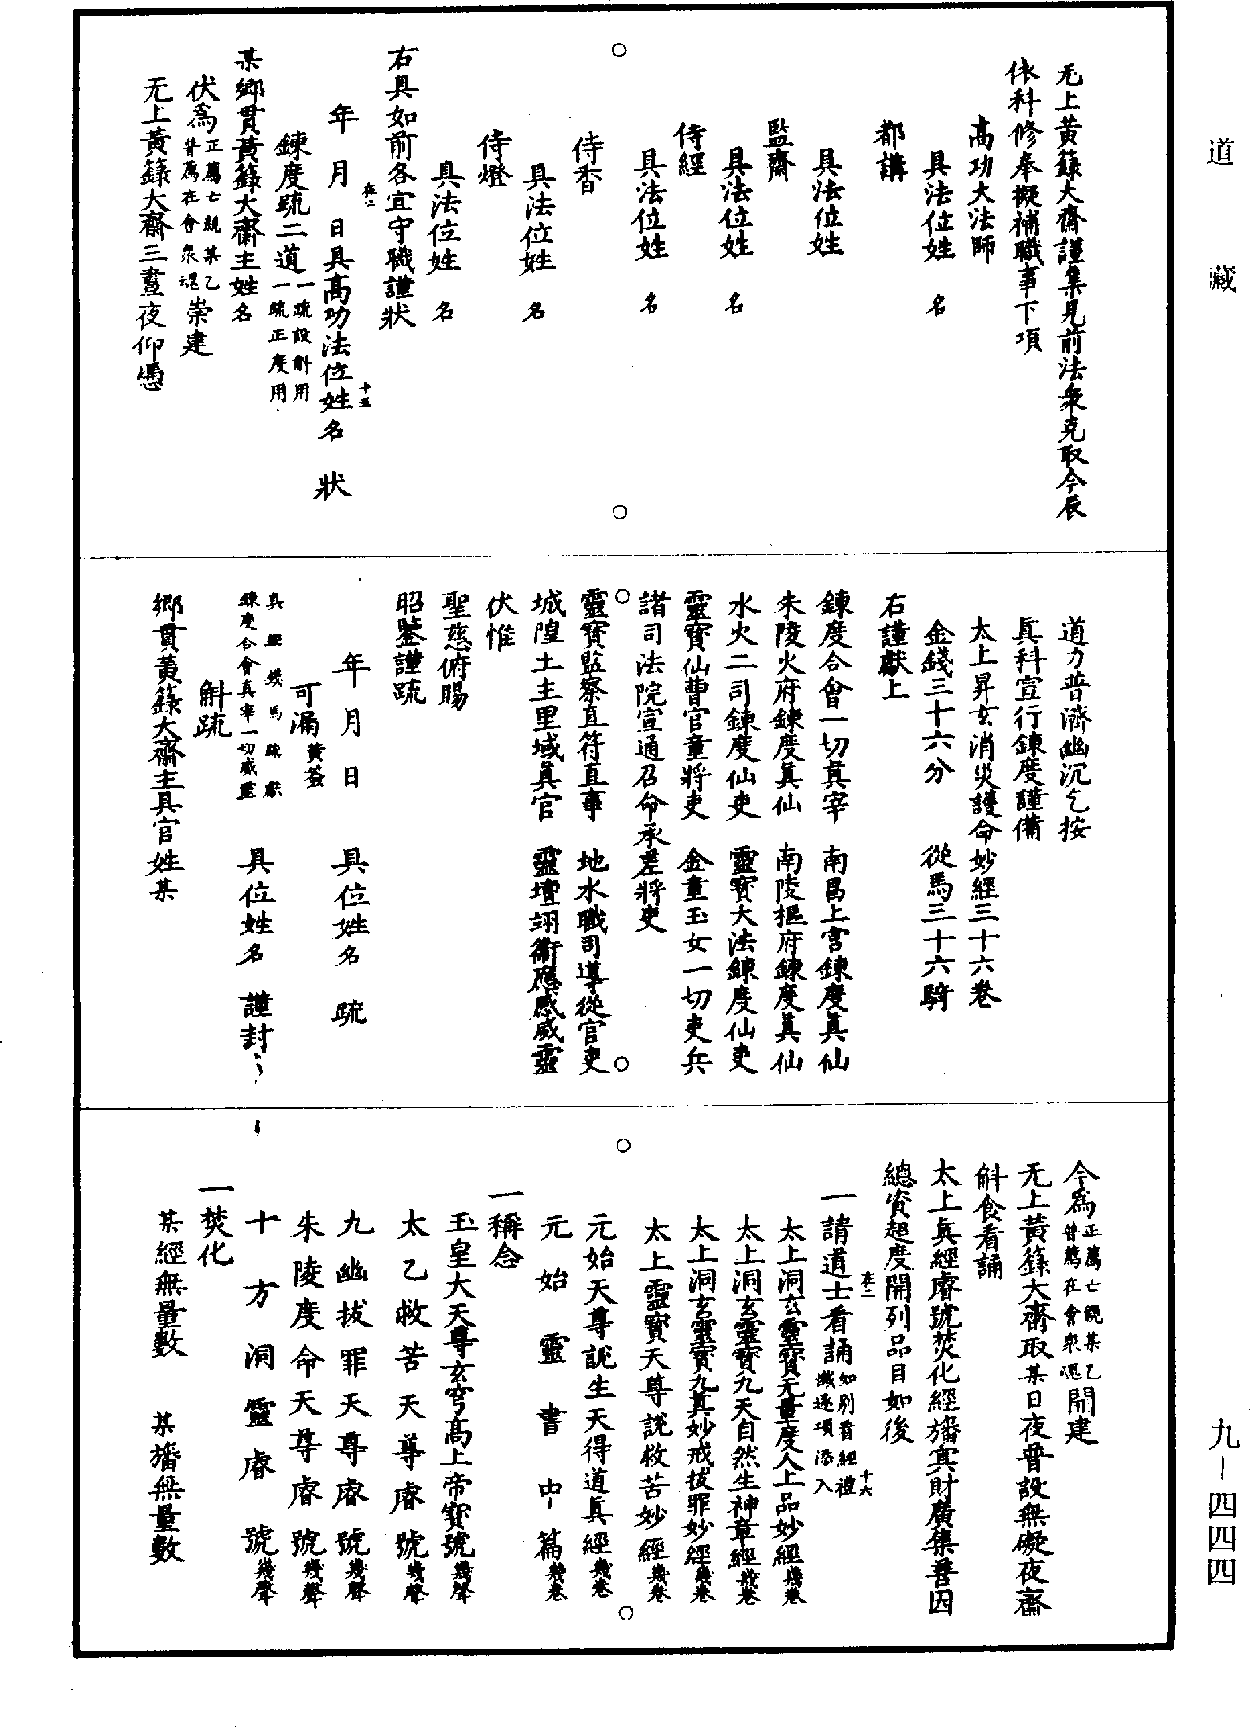 道藏
无上黃籙大齋謹集見前法衆克取今辰
依科修奉擬補職事下項
高功大法師
具法位姓 名
都講
具法位姓
監齋
具法位姓 名
侍經
具法位姓 名
侍香
具法位姓 名
侍燈
具法位姓 名
右具如前各宜守職謹狀
年 月 日具高功法位姓名 狀
十五
鍊度疏二道一疏設斛用一疏正度用
某鄉貫黃籙大齋主姓名
伏爲正薦亡親某乙普薦在會衆魂崇建
无上黃籙大齋三晝夜仰憑
道力普濟幽沉乞按
眞科宣行鍊度謹備
太上昇玄消災護命妙經三十六卷
金錢三十六分 從馬三十六騎
右謹獻上
鍊度合會一切眞宰 南昌上宮鍊度眞仙
朱陵火府鍊度眞仙 南陵樞府鍊度眞仙
水火二司鍊度仙吏 靈寶大法鍊度仙吏
靈寶仙曹官童將吏 金童玉女一切吏兵
諸司法院宣通召命承差將吏
靈寶監察直符直事 地水職司導從官吏
城隍土主里域眞官 靈壇翊衞應感威靈
伏惟
聖慈俯賜
昭鑒謹疏
年 月 日 具位姓名 疏
可漏黃簽
眞經錢馬疏獻
鍊度合會眞宰一切威靈 具位姓名 謹封
斛疏
鄉貫黃籙大齋主具官姓某
今爲正薦亡親某乙普薦在會衆魂開建
无上黃籙大齋取某日夜普設無礙夜齋
斛食看誦
太上眞經睿號焚化經旛冥財廣集善因
總資超度開列品目如後
一請道士看誦如別看經禮懺逐項添入
十六
太上洞玄靈寶无量度人上品妙經幾卷
太上洞玄靈寶九天自然生神章經幾卷
太上洞玄靈寶九眞妙戒拔罪妙經幾卷
太上靈寶天尊說救苦妙經幾卷
元始天尊說生天得道眞經幾卷
元始靈書中篇幾卷
一稱念
玉皇大天尊玄穹高上帝寶號幾聲
太乙救苦天尊睿號幾聲
九幽拔罪天尊睿號幾聲
朱陵度命天尊睿號幾聲
十方洞靈睿號幾聲
一焚化
某經無量數 某旛無量數
九－四四四